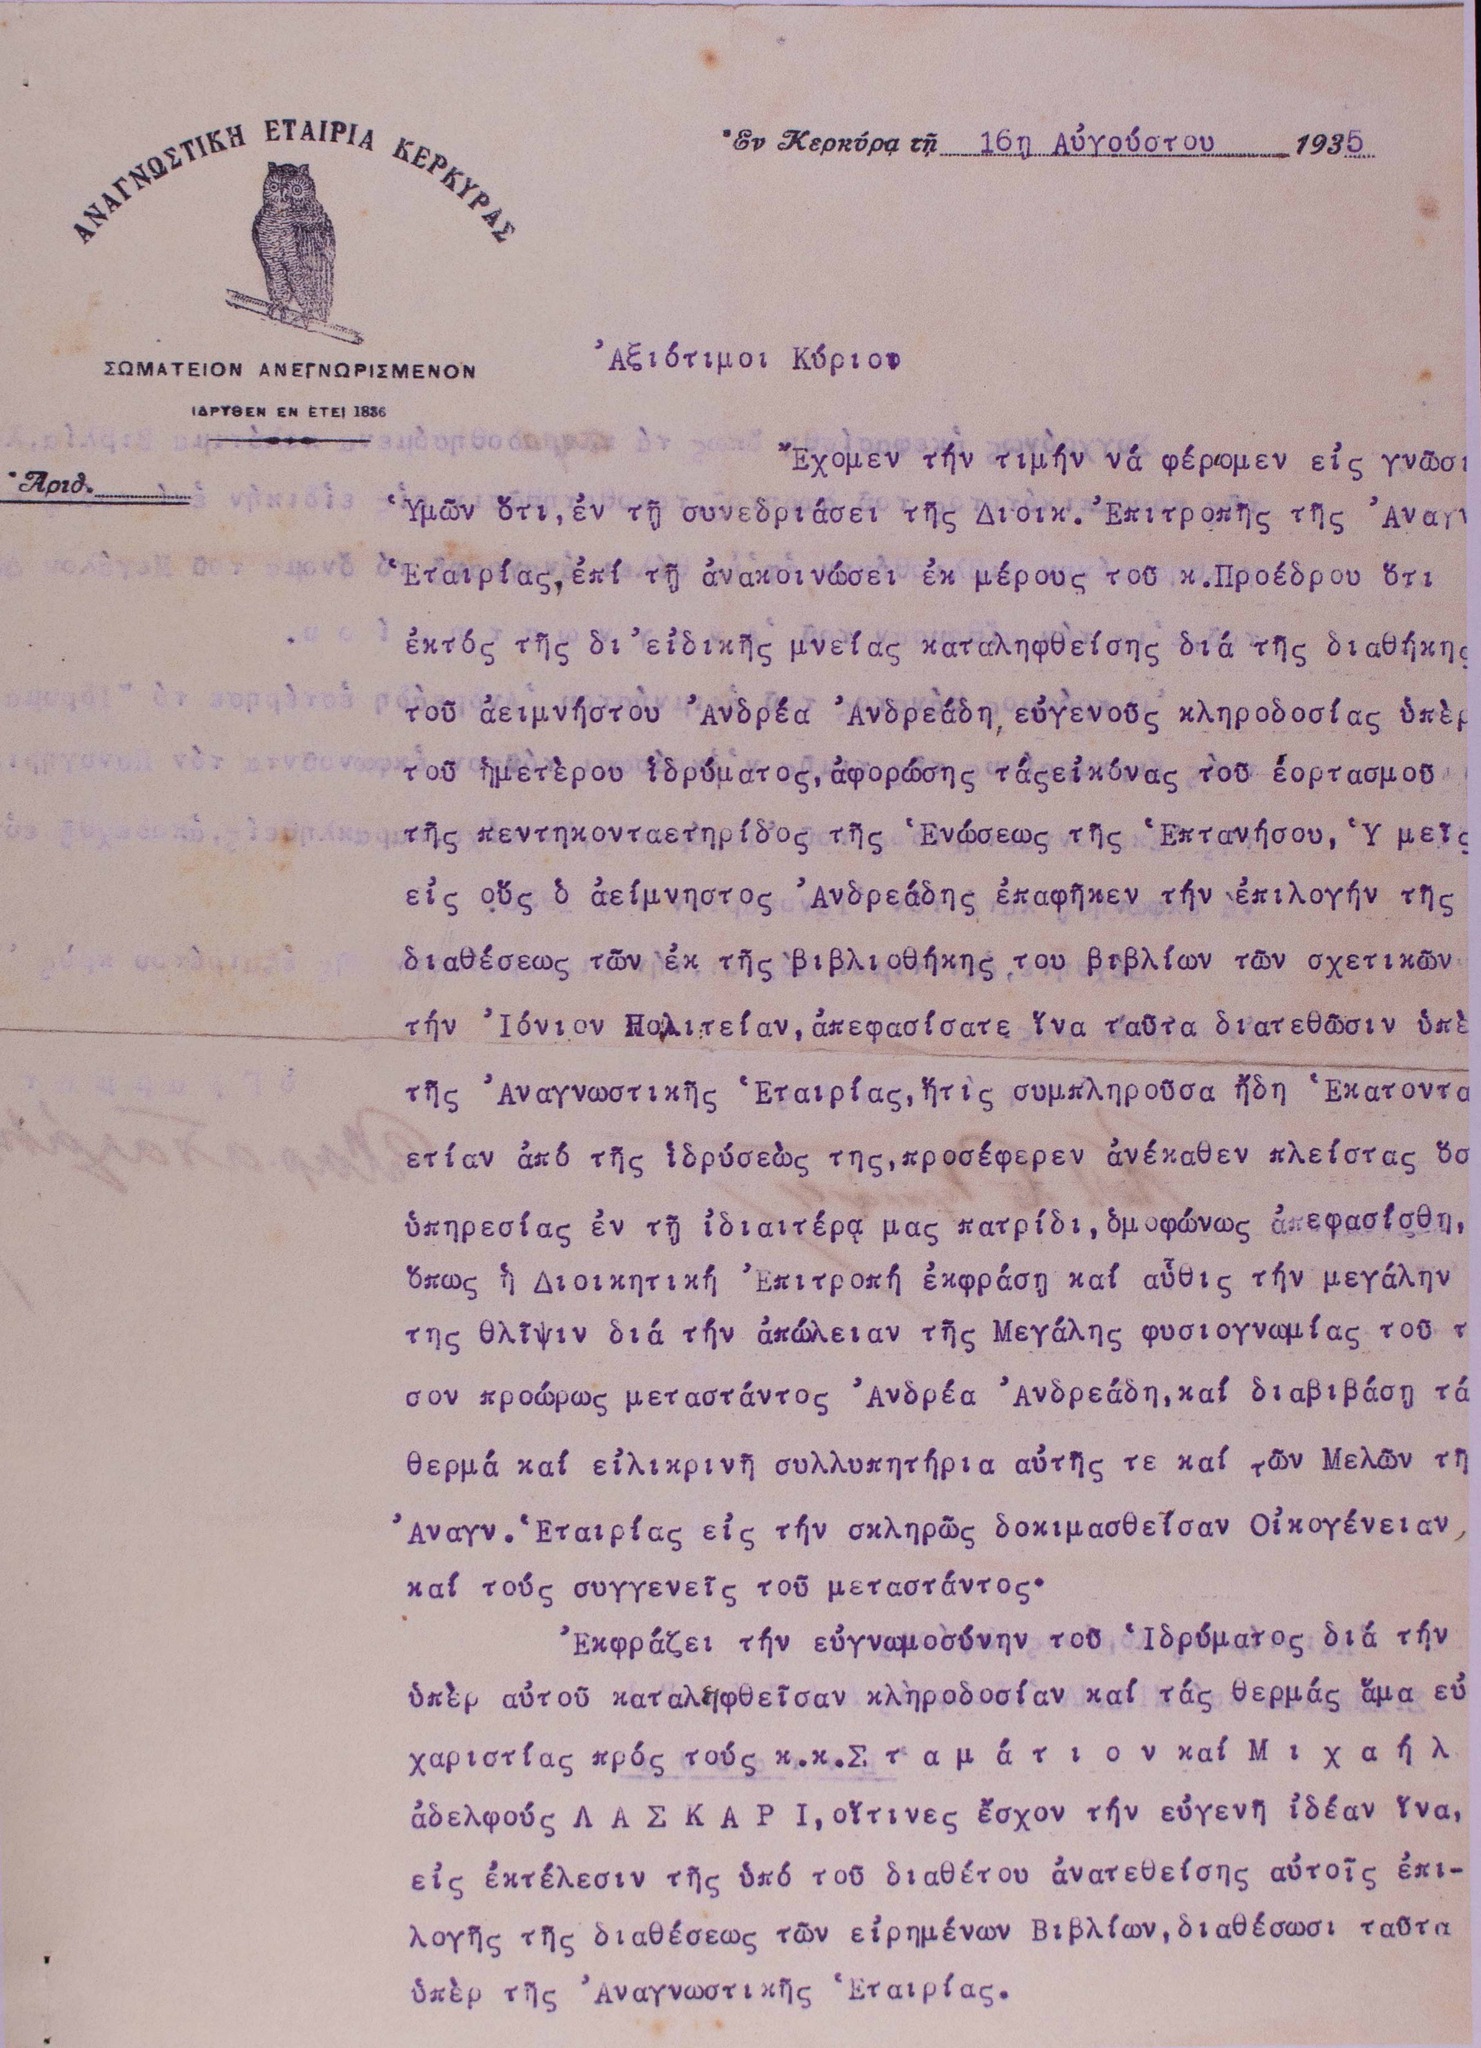 ΑΝΑΓΝΩΣΤΙΚΗ ΕΤΑΙΡΙΑ ΚΕΡΚΥΡΑΣ
ΣΩΜΑΤΕΙΟΝ ΑΝΕΓΝΩΡΙΣΜΕΝΟΝ
ΙΔΡΥΘΕΝ ΕΝ ΕΤΕΙ 1836
Ἀριθ.
Ἐν Κερκύρᾳ τῇ 16η Αὐγούστου 1935
Ἀξιότιμοι Κύριοι
Ἔχομεν τήν τιμήν νά φέρομεν εἰς γνῶσι
Ὑμῶν ὅτι, ἐν τῇ συνεδριάσει τῆς Διοικ. Ἐπιτροπῆς τῆς Ἀναγν
Ἑταιρίας, ἐπί τῇ ἀνακοινώσει ἐκ μέρους τοῦ κ. Προέδρου ὅτι
ἐκτός τῆς δι'εἰδικῆς μνείας καταληφθείσης διά τῆς διαθήκης
τοῦ ἀειμνήστου Ἀνδρέα Ἀνδρεάδη, εὐγενοῦς κληροδοσίας ὑπὲρ
τοῦ ἡμετὲρου ἱδρύματος, ἀφορώσης τάςεἰκόνας τοῦ ἑορτασμοῦ
τῆς πεντηκονταετηρίδος τῆς Ἑνώσεως τῆς Ἑπτανήσου, Ὑ μεῖς
εἰς οὕς ὁ ἀείμνηστος Ἀνδρεάδης ἐπαφῆκεν τήν ἐπιλογήν τῆς
διαθέσεως τῶν ἐκ τῆς βιβλιοθήκης του βιβλίων τῶν σχετικῶν
τήν Ἰόνιον Πολιτείαν, ἀπεφασίσατε ἵνα ταῦτα διατεθῶσιν ὑπὲ
τῆς Ἀναγνωστικῆς Ἑταιρίας, ἥτις συμπληροῦσα ἤδη Ἑκατοντα
ετίαν ἀπό τῆς ἱδρύσεὼς της, προσέφερεν ἀνέκαθεν πλείστας ὅσ
ὑπηρεσίας ἐν τῇ ἰδιαιτέρᾳ μας πατρίδι, ὁμοφώνως ἀπεφασίσθη,
ὅπως ἡ Διοικητική Ἐπιτροπή ἐκφράσῃ καί αὖθις τήν μεγάλην
της θλῖψιν διά τήν ἀπώλειαν τῆς Μεγάλης φυσιογνωμίας τοῦ τ
σον προώρως μεταστάντος Ἀνδρέα Ἀνδρεάδη, καί διαβιβάσῃ τά
θερμά καί εἰλικρινῆ συλλυπητήρια αὐτῆς τε καί τῶν Μελῶν τῆ
Ἀναγν. Ἑταιρίας εἰς τήν σκληρῶς δοκιμασθεῖσαν Οἰκογένειαν,
καί τούς συγγενεῖς τοῦ μεταστάντος.
Ἐκφράζει τήν εὐγνωμοσύνην τοῦ Ἱδρύματος διά τήν
ὑπὲρ αὐτοῦ καταληφθεῖσαν κληροδοσίαν καί τάς θερμάς ἅμα εὐ
χαριστίας πρός τούς κ.κ. Σ τ α μ ά τ ι ο ν καί Μ ι χ α ή λ
ἀδελφούς Λ Α Σ Κ Α Ρ Ι, οἵτινες ἔσχον τήν εὐγενῆ ἰδέαν ἵνα,
εἰς ἐκτέλεσιν τῆς ὑπό τοῦ διαθέτου ἀνατεθείσης αὐτοῖς ἐπι-
λογῆς τῆς διαθέσεως τῶν εἰρημένων Βιβλίων, διαθέσωσι ταῦτα
ὑπὲρ τῆς Ἀναγνωστικῆς Ἑταιρίας.